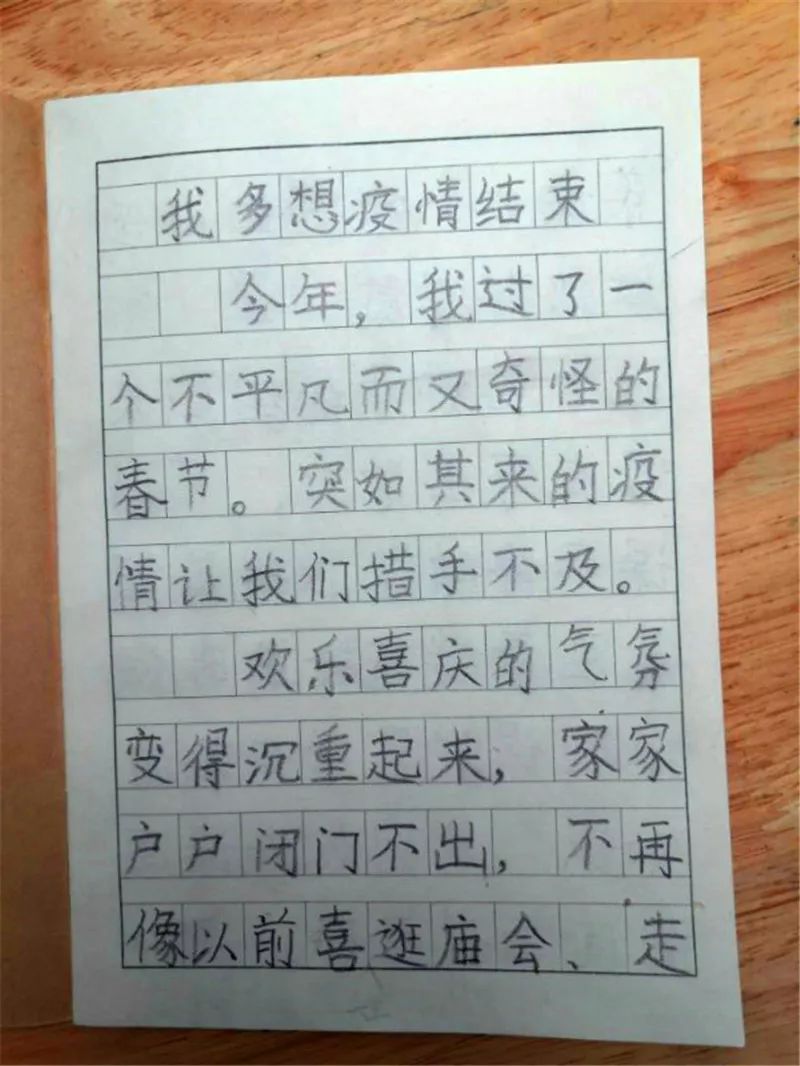 我多想疫情结束
今年,我过了一
个不平凡而又奇怪的
春节。突如其来的疫
情让我们措手不及。
欢乐喜庆的气氛
变得沉重起来,家家
户户闭门不出,不再
像以前喜逛庙会、走